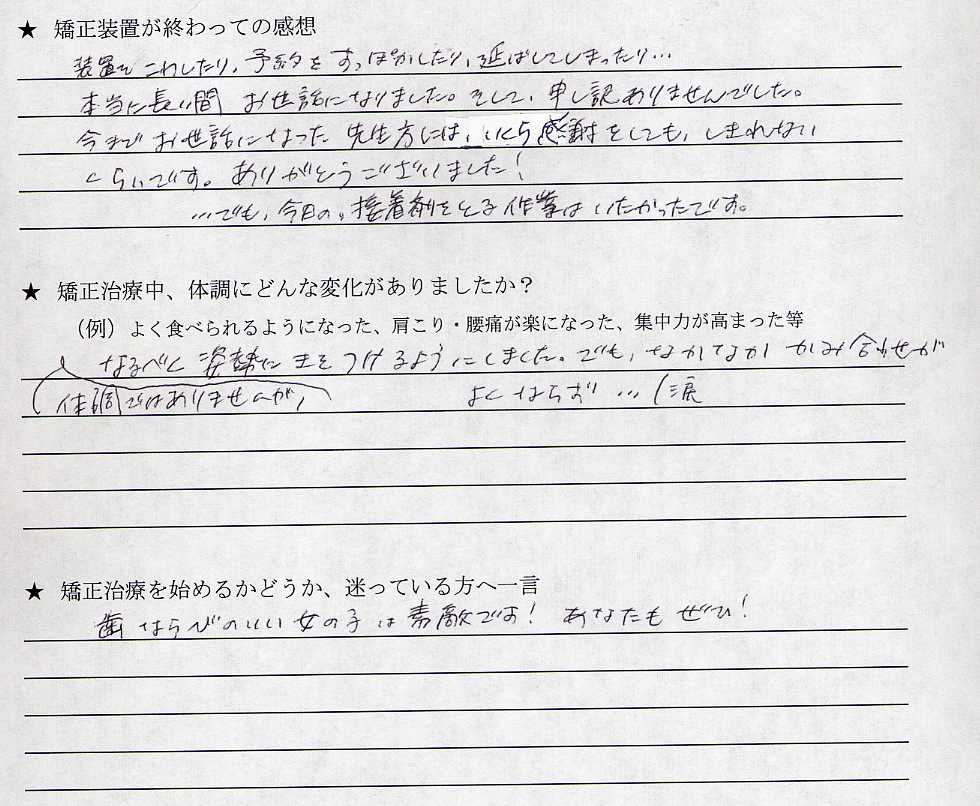 ★ 矯正装置が終わっての感想
装置をこわしたり、予約をすっぽかしたり、延ばしてしまったり…
本当に長い間 お世話になりました。そして、申し訳ありませんでした。
今までお世話になった 先生方には、いくら感謝をしても、しきれない
くらいです。ありがとうございました！
…でも、今日の、接着剤をとる作業はいたかったです。
★ 矯正治療中、体調にどんな変化がありましたか？
（例）よく食べられるようになった、肩こり・腰痛が楽になった、集中力が高まった等
なるべく 姿勢に気をつけるようにしました。でも、なかなか かみ合わせが
（体調ではありませんが） よくならず …（涙
★ 矯正治療を始めるかどうか、迷っている方へ一言
歯ならびのいい女の子は素敵です！ あなたもぜひ！